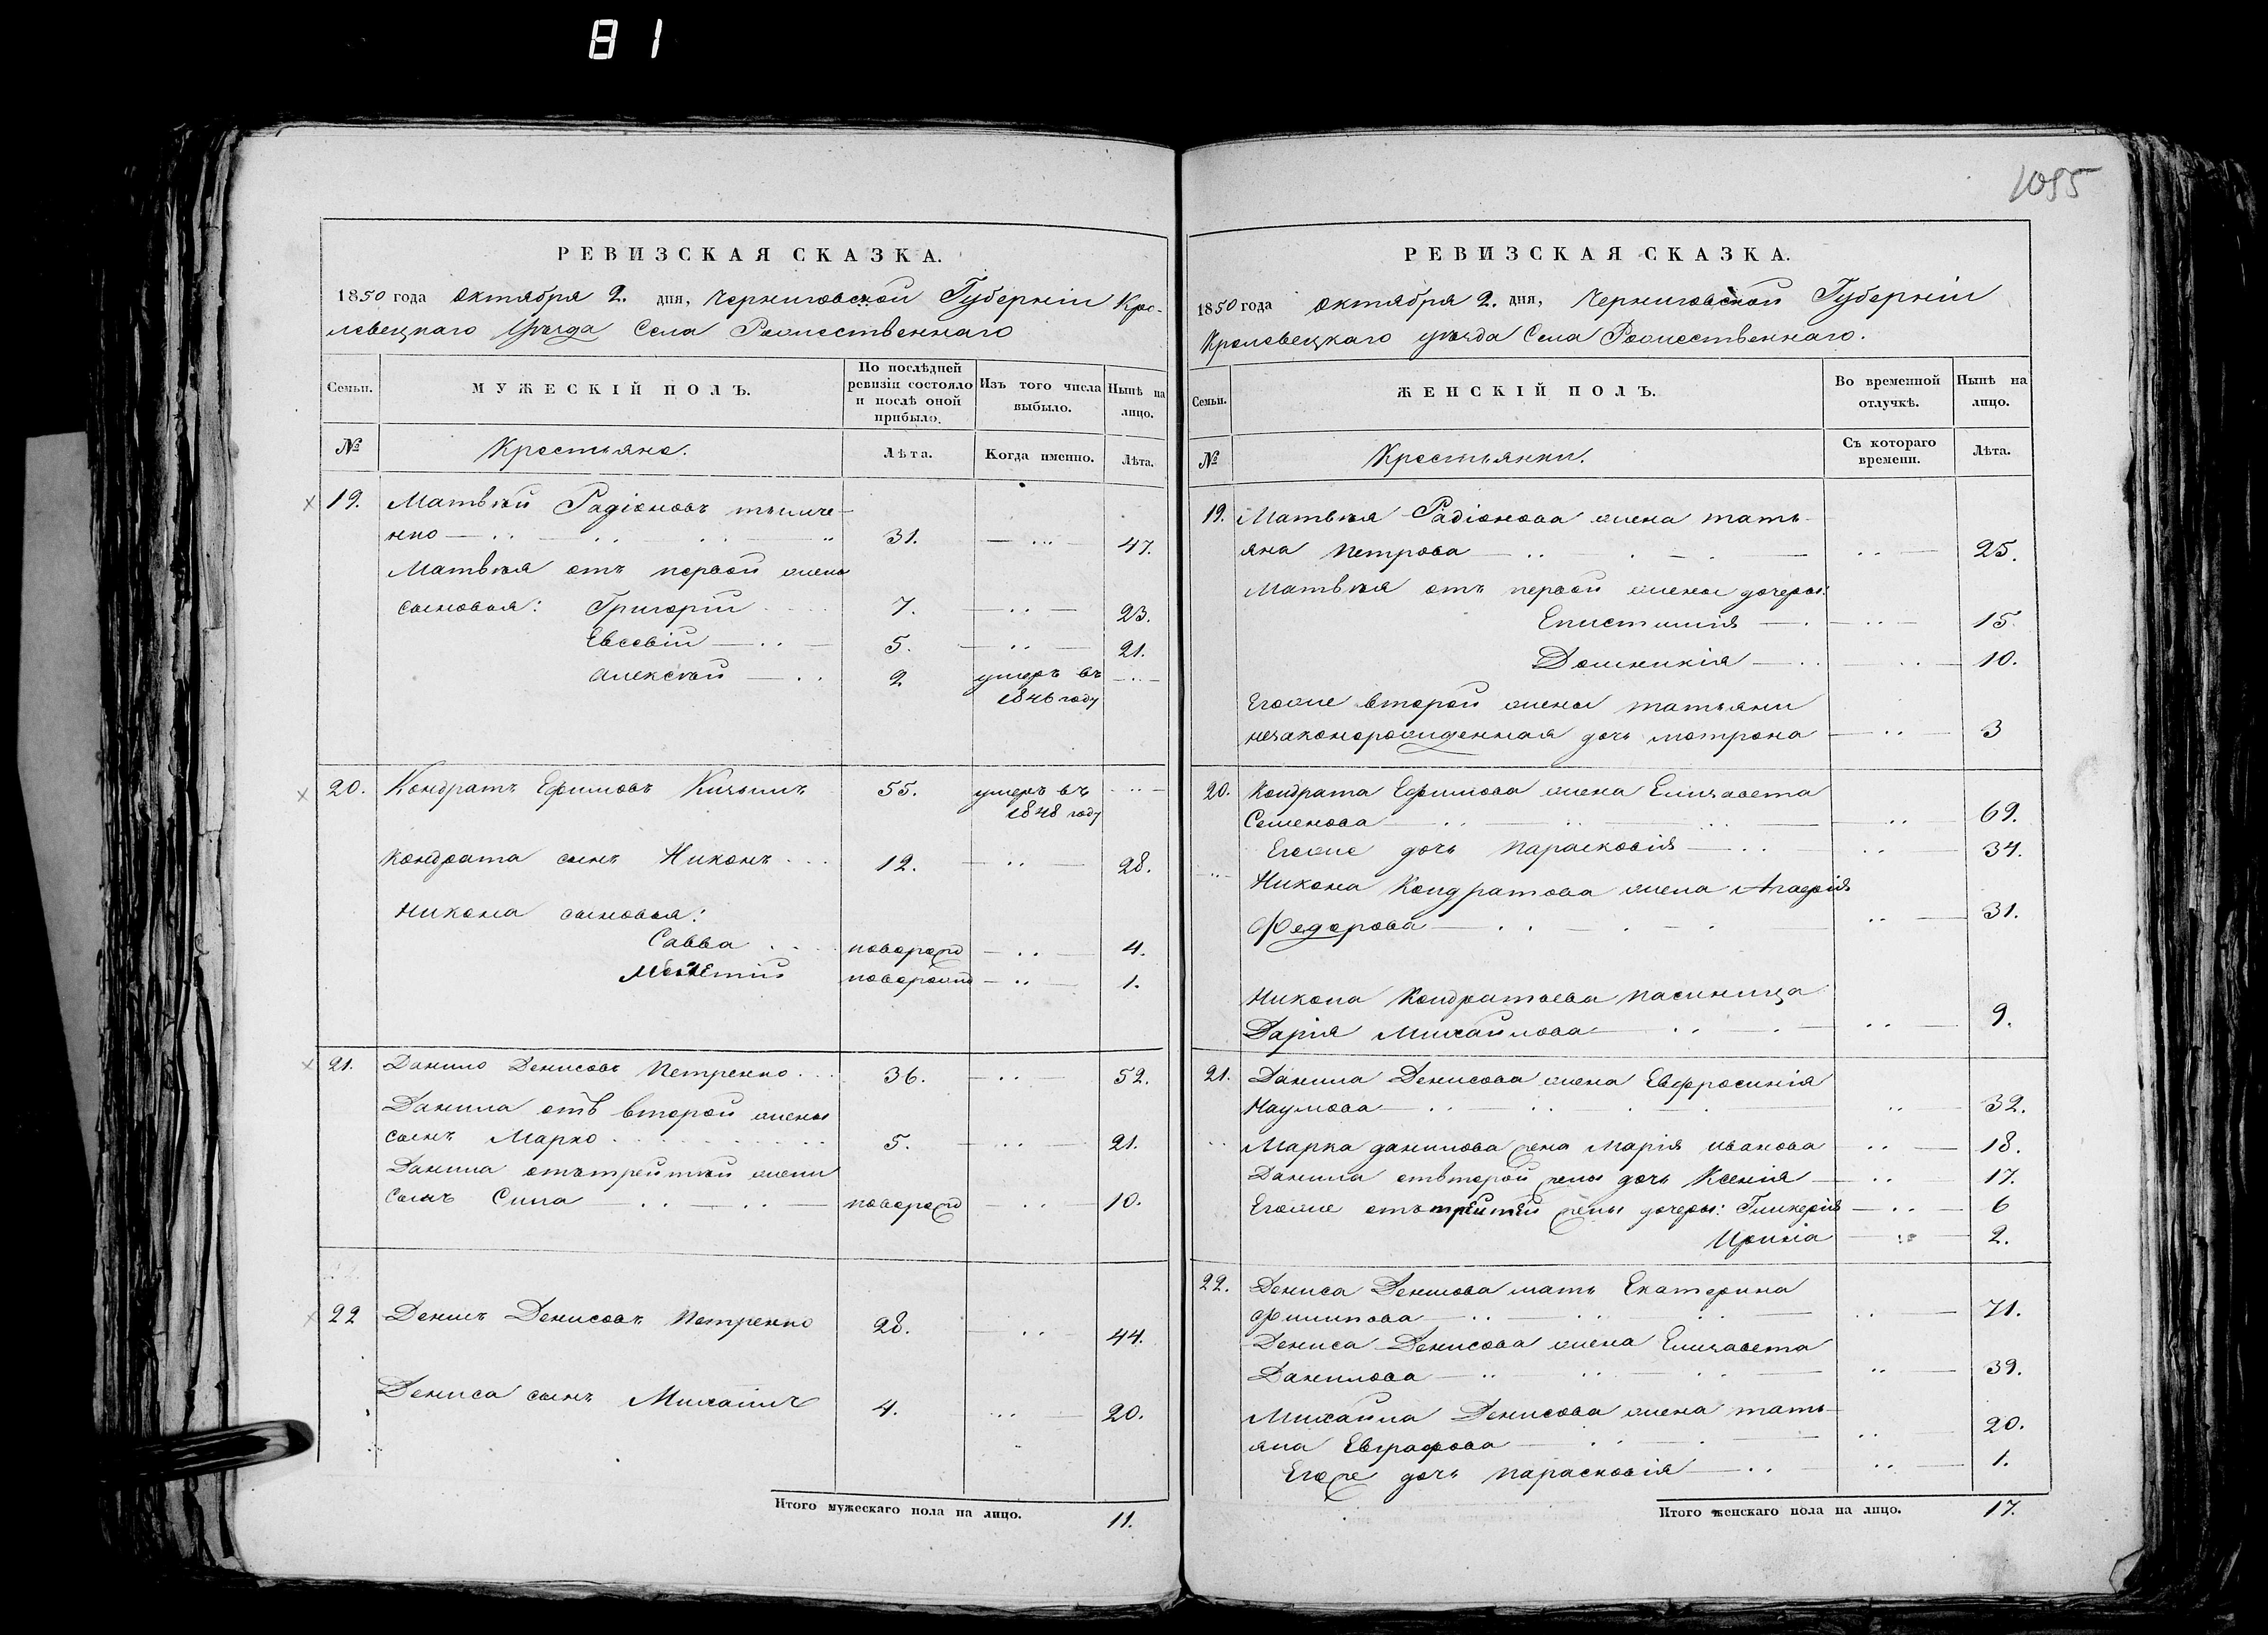 81
1095
РЕВИЗСКАЯ СКАЗКА.
1850 года октября 2. дня, Черниговской Губерніи Кро-
левецкаго уѣзда Села Рожественнаго
Семьи.
МУЖЕСКІЙ ПОЛЪ.
По послѣдней ревизіи состояло и послѣ оной прибыло.
Изъ того числа выбыло.
Нынѣ на лицо.
№ Крестьяне. Лѣта. Когда именно. Лѣта.
19. Матвѣй Радіоновъ
нко 31. 47.
Матвѣя отъ первой жены
сыновья: Григорій 7. 23.
Евсевій 5. 21.
Алексѣй 2 умеръ въ
1846 году
20. Кондратъ Ефимовъ 55. умеръ въ
1848 году
Кондрата сынъ Никонъ 12. 28.
Никона сыновья:
Савва новорожд 4.
Мелетій новорожд 1.
21. Данило Денисовъ Петренко 36. 52.
Данила отъ второй жены
сынъ Марко 5. 21.
Данила отъ третьей жены
сынъ Сила новорожд 10.
22 Денисъ Денисовъ Петренко 28. 44.
Дениса сынъ Михаилъ 4. 20.
Итого мужескаго пола на лицо. 11.
РЕВИЗСКАЯ СКАЗКА.
1850 года октября 2. дня, Черниговской Губерніи
Кролевецкаго уѣзда Села Рожественнаго.
Семьи.
ЖЕНСКІЙ ПОЛЪ.
Во временной отлучкѣ.
Нынѣ на лицо.
№ Крестьянки. Съ котораго времени. Лѣта.
19. Матвѣя Радіонова жена Тать-
яна Петрова 25.
Матвѣя отъ первой жены дочери:
Епистимія 15.
Домникія 10.
Егоже второй жены Татьяни
незаконорожденная дочь Мотрона 3
20. Кондрата Ефимова жена Елизавета
Семенова 69.
Егоже дочь Парасковія 34.
Никона Кондратова жена Агафія
Федорова 31.
Никона Кондратьева пасиница
Дарія Михайлова 9.
21. Данила Денисова жена Евфросинія
Наумова 32.
Марка Данилова жена Марія Иванова 18.
Данила отвторой жены дочь Ксенія 17.
Егоже отъ третьей жены дочери: Гликерія 6
Ирина 2.
22. Дениса Денисова мать Екатерина
Филипова 71.
Дениса Денисова жена Елизавета
Данилова 39.
Михайла Денисова жена Тать-
яна Евграфова 20.
Егоже дочь Парасковія 1.
Итого женскаго пола на лицо. 17.